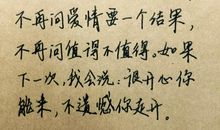 不再问爱情要一个结果,
不再问值得不值得。如果
下一次,我会说:很开心你
能来,不遗憾你走开。